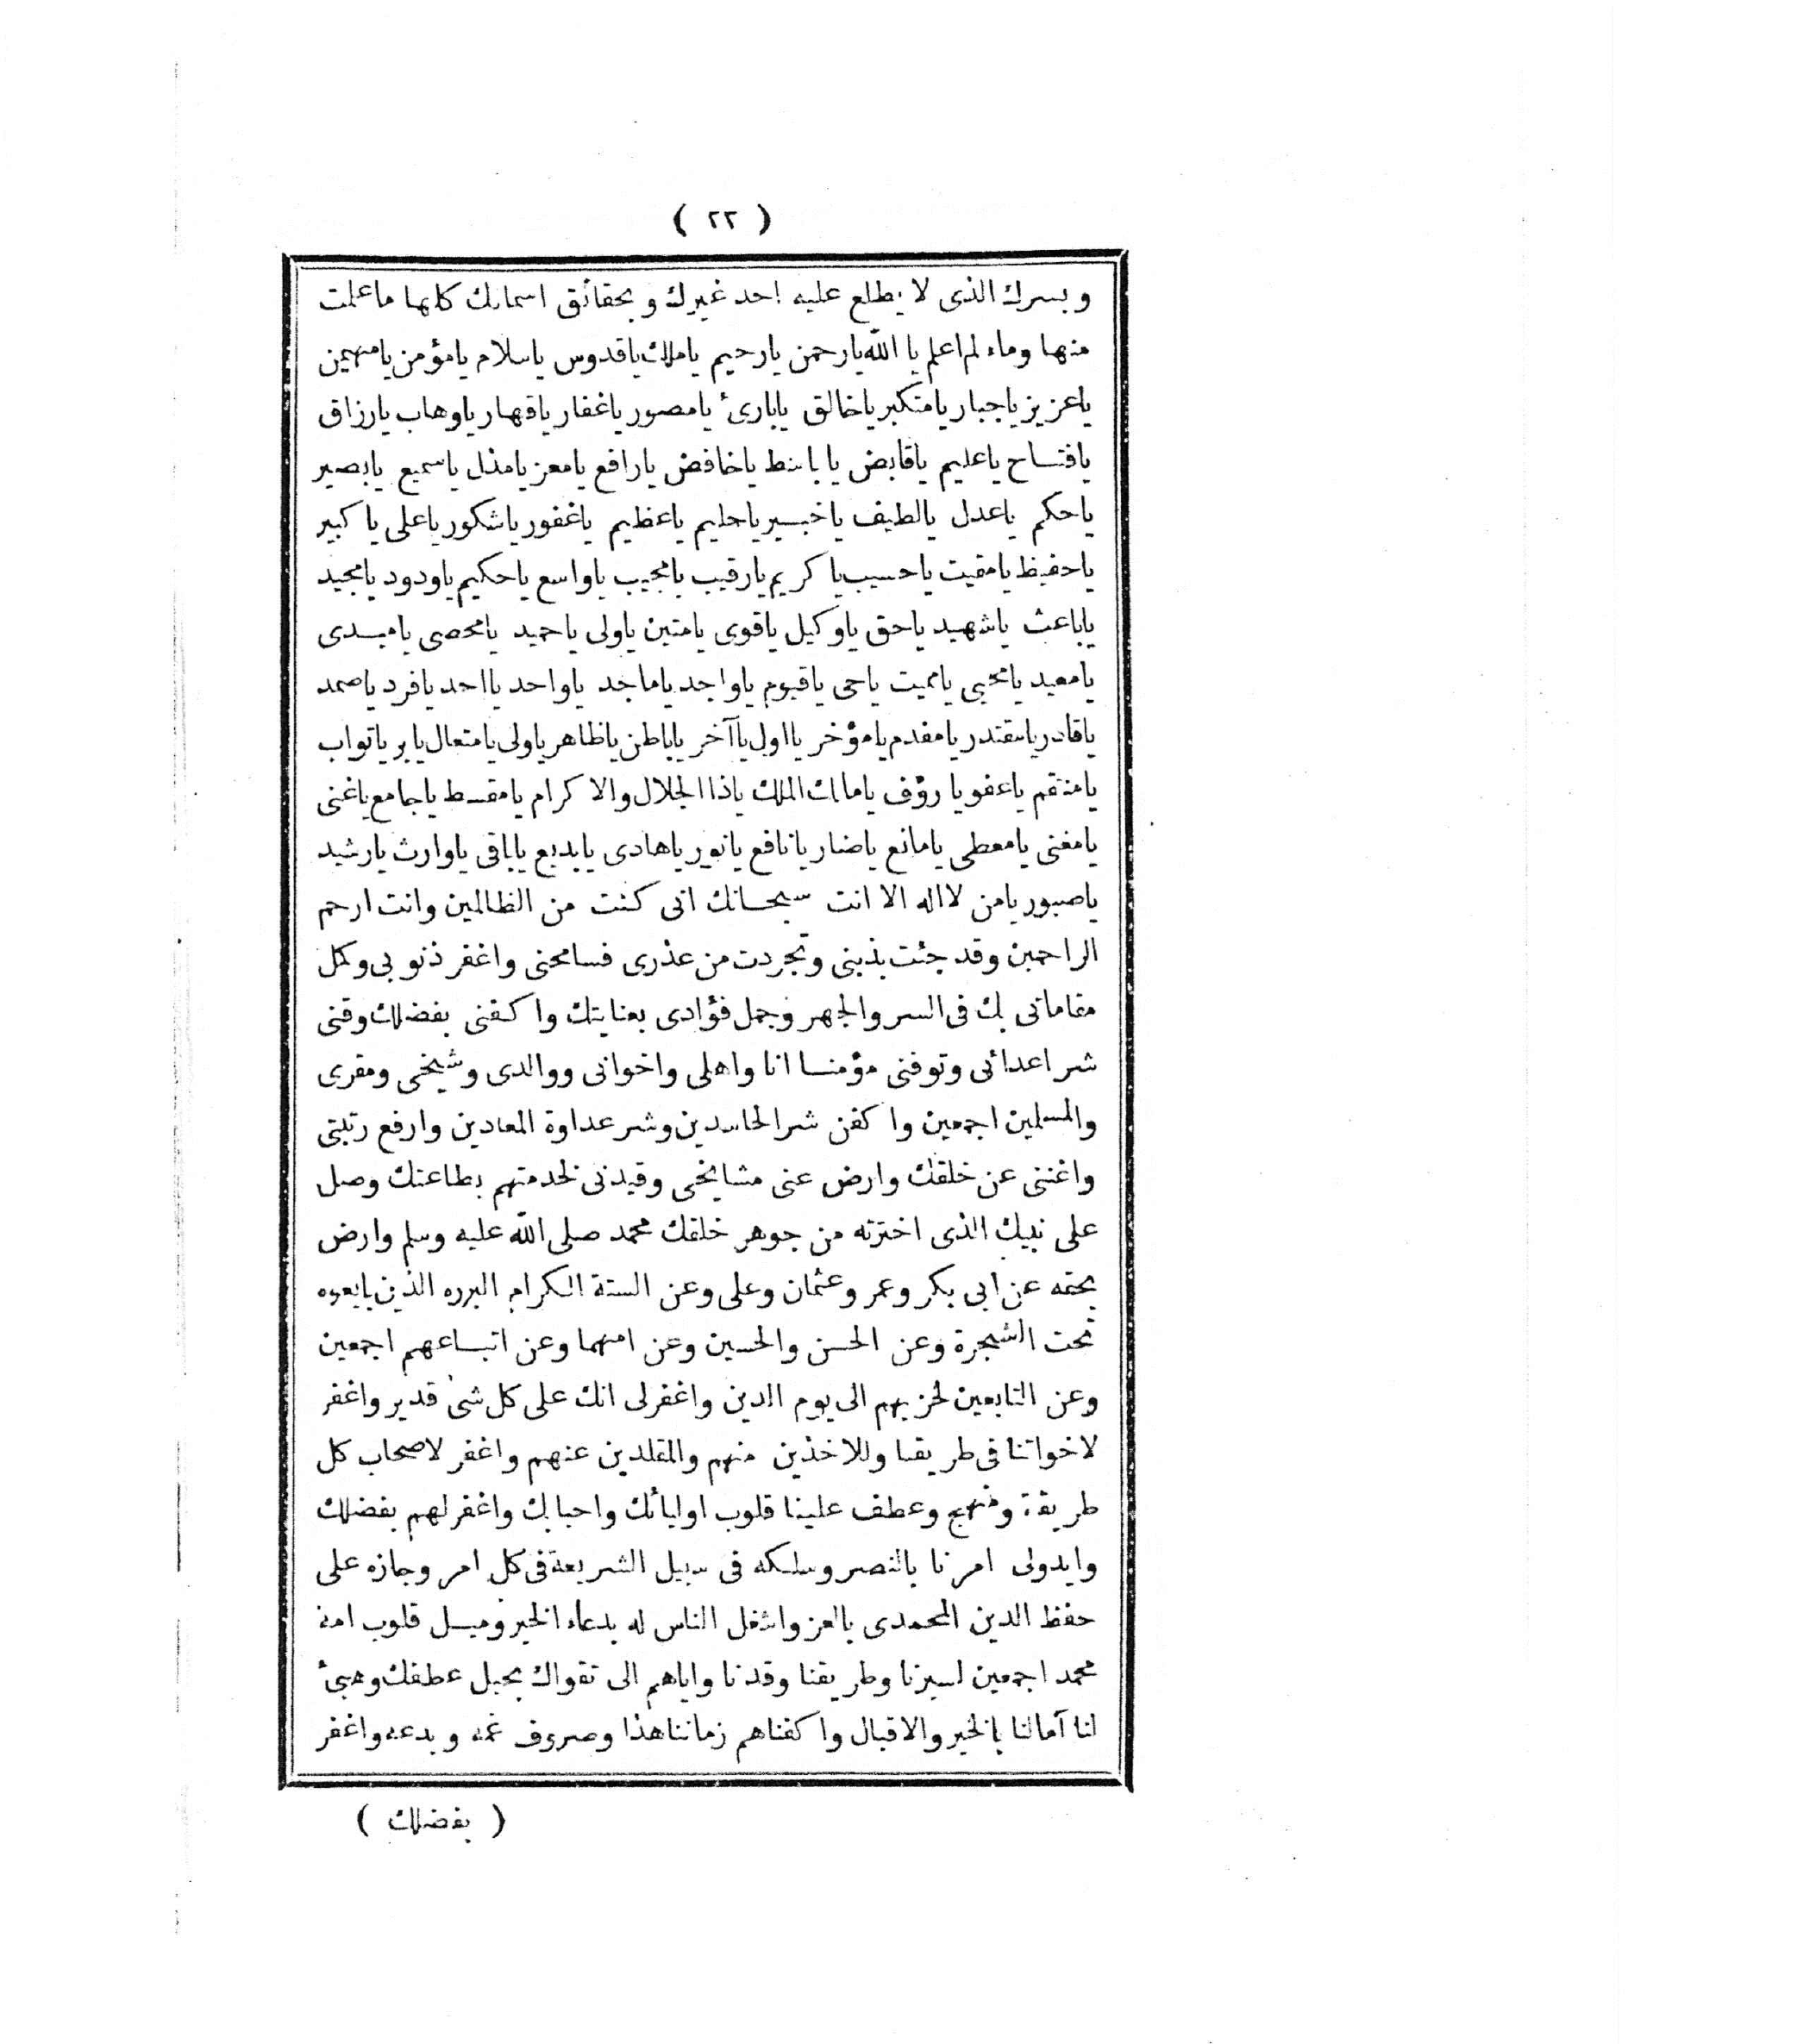 ( ٢٢ )
وبسرك الذى لا يطلع عليه احد غيرك وبحقائق اسمائك كلها ما علمت
منها وما لم اعلم يا الله يارحمن يارحيم ياملك ياقدوس ياسلام يامؤمن يامهيمن
ياعزيز ياجبار يامتكبر ياخالق يابارئ يامصور ياغفار ياقهار ياوهاب يارزاق
يافتاح ياعليم ياقابض ياباسط ياخافض يارافع يامعز يامذل ياسميع يابصير
ياحكم ياعدل يالطيف ياخبير ياحليم ياعظيم ياغفور ياشكور ياعلى ياكبير
ياحفيظ يامقيت ياحسيب ياكريم يارقيب يامجيب ياواسع ياحكيم ياودود يامجيد
ياباعث ياشهيد ياحق ياوكيل ياقوى يامتين ياولى ياحميد يامحصى يامبدى
يامعيد يامحيى يامميت ياحى ياقيوم ياواجد ياماجد ياواحد يااحد يافرد ياصمد
ياقادر يامقتدر يامقدم يامؤخر يااول ياآخر ياباطن ياظاهر ياولى يامتعال يابر ياتواب
يامنتقم ياعفو يارؤف يامالك الملك ياذا الجلال والاكرام يامقسط ياجامع ياغنى
يامغنى يامعطى يامانع ياضار يانافع يانور ياهادى يابديع ياباقى ياوارث يارشيد
ياصبور يامن لااله الا انت سبحانك انى كنت من الظالمين وانت ارحم
الراحمين وقد جئت بذنبى وتجردت من عذرى فسامحنى واغفر ذنوبى وكمل
مقاماتى بك فى السر والجهر وجمل فؤادى بعنايتك واكفنى بفضلك وقنى
شر اعدائى وتوفنى مؤمنا انا واهلى واخوانى ووالدى وشيخى ومقرى
والمسلمين اجمعين واكفن شر الحاسدين وشر عداوة المعادين وارفع رتبتى
واغننى عن خلقك وارض عنى مشايخى وقيدنى لخدمتهم بطاعتك وصل
على نبيك الذى اخترته من جوهر خلقك محمد صلى الله عليه وسلم وارض
بحقه عن ابى بكر وعمر وعثمان وعلى وعن الستة الكرام البرره الذين بايعوه
تحت الشجرة وعن الحسن والحسين وعن امهما وعن اتباعهم اجمعين
وعن التابعين لحزبهم الى يوم الدين واغفرلى انك على كل شئ قدير واغفر
لاخواتنا فى طريقنا وللاخذين منهم والمقلدين عنهم واغفر لاصحاب كل
طريقة ومنهج وعطف علينا قلوب اوليائك واحبابك واغفرلهم بفضلك
وايدولى امرنا بالنصر وسلكه فى سبيل الشريعة فى كل امر وجازه على
حفظ الدين المحمدى بالعز واشغل الناس له بدعاء الخير وميل قلوب امة
محمد اجمعين لسيرنا وطريقنا وقدنا واياهم الى تقواك بحبل عطفك وهيئ
لنا آمالنا بالخير والاقبال واكفناهم زماننا هذا وصروف غمه وبدعه واغفر
( بفضلك )